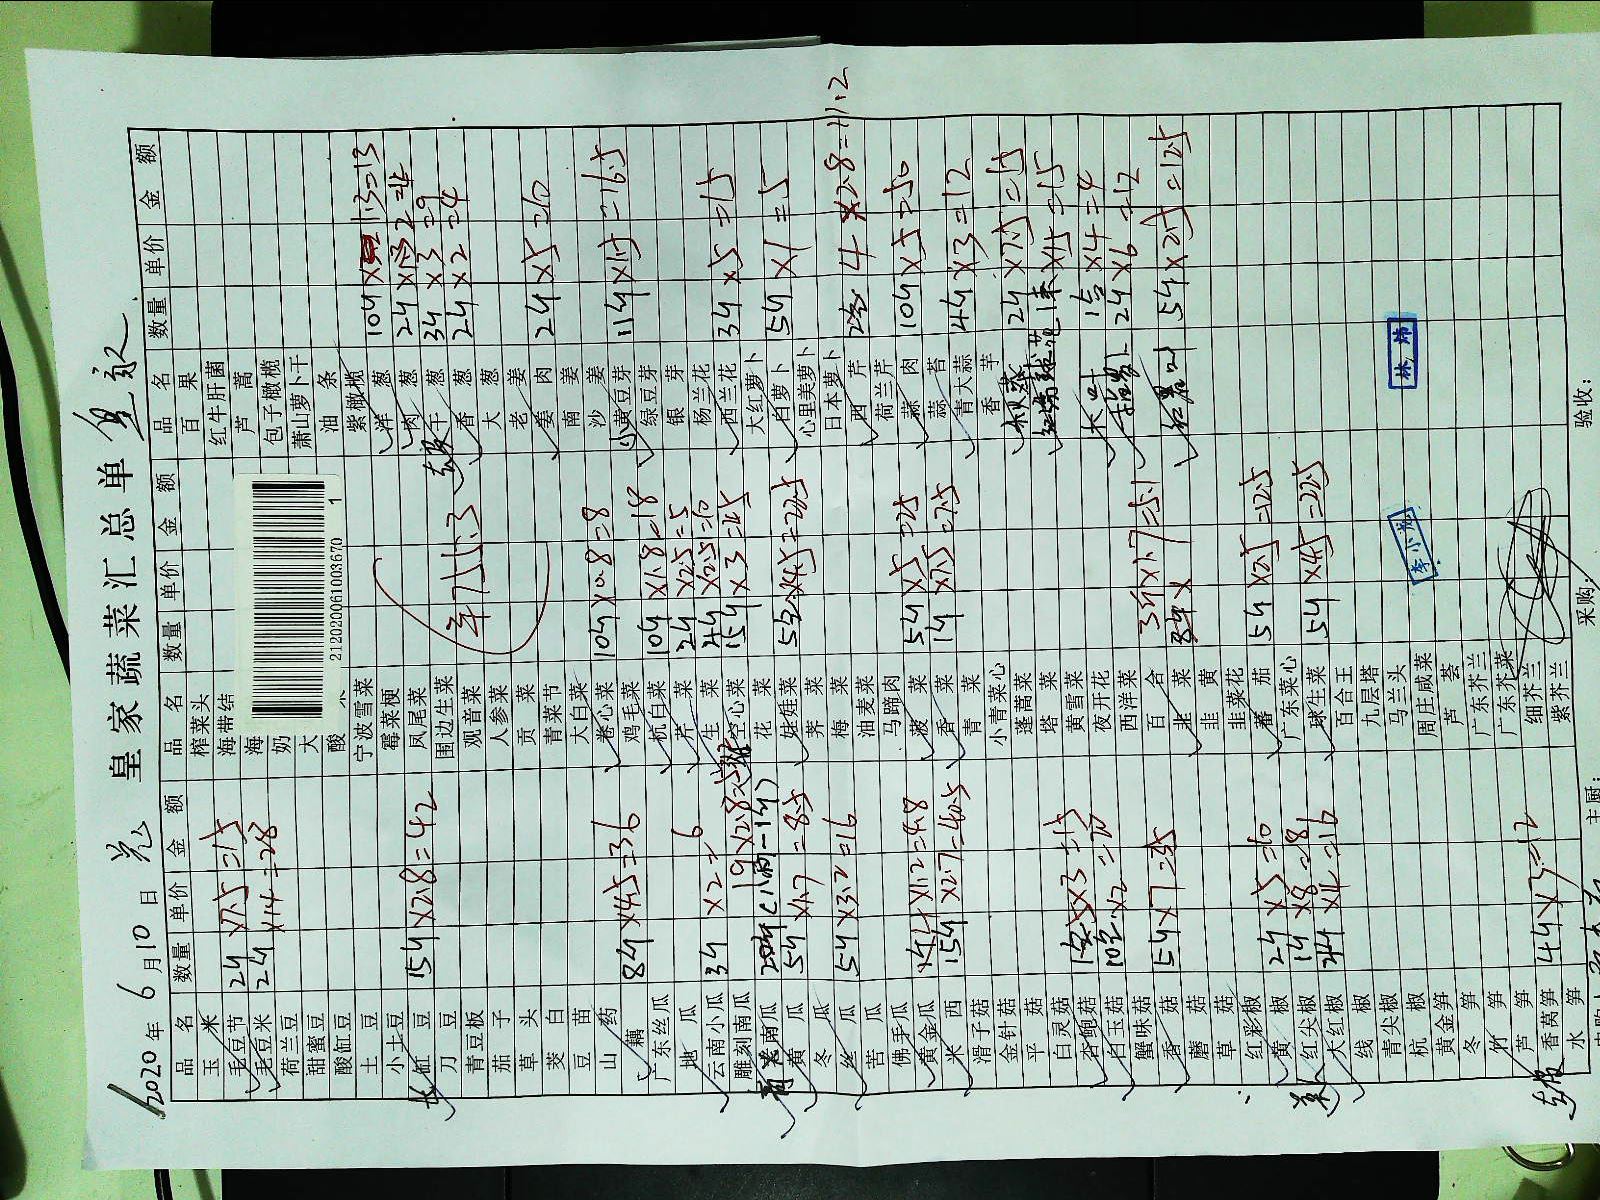 皇家蔬菜汇总单
2020年6月10日
品名 数量 单价 金额 品名 数量 单价 金额 品名 数量 单价 金额
玉米
毛豆节 2斤×7.5=15
毛豆米 2斤×14=28
荷兰豆
甜蜜豆
酸缸豆
土豆
小土豆
长缸豆 15斤×2.8=42
刀豆
青豆板
茄子
草头
茭白
豆苗
山药
藕 8斤×4.5=36
广东丝瓜
地瓜
云南小瓜 3斤×2=6
雕刻南瓜
南瓜
黄瓜 5斤×1.7=8.5
冬瓜
丝瓜 5斤×3.2=16
苦瓜
佛手瓜
黄金瓜 4×1.2=4.8
米西 15斤×2.7=40.5
滑子菇
金针菇
平菇
白灵菇
杏鲍菇 5×3=15
白玉菇 10包×2=20
蟹味菇
香菇 5斤×7=35
蘑菇
草菇
红彩椒
黄椒 2斤×5=10
红尖椒 1斤×8=8
大红椒
线椒
青尖椒
杭椒
黄金笋
冬笋
竹笋
芦笋
香莴笋 4斤×3=12
水笋
榨菜头
海带结
海
奶
大
酸
212020061003670 1
宁波雪菜
霉菜梗
凤尾菜
围边生菜
观音菜
人参菜
贡菜
青菜节
大白菜
卷心菜 10斤×0.8=8
鸡毛菜
杭白菜 10斤×1.8=18
芹菜 2斤×2.5=5
生菜 4斤×2.5=10
空心菜 15斤×3=45
花菜
娃娃菜 5包×4.5=22.5
荠菜
梅菜
油麦菜
马蹄肉
菠菜 5斤×5=25
香菜 1斤×7.5=7.5
青菜
小青菜心
蓬蒿菜
塔菜
黄雪菜
夜开花
西洋菜
百合 3斤×1.7=5.1
韭菜
韭黄
韭菜花
蕃茄 5斤×2.5=12.5
广东菜心
球生菜 5斤×4.5=22.5
百合王
九层塔
马兰头
周庄咸菜
芦荟
广东芥兰
广东芥菜
细芥兰
紫芥兰
百果
红牛肝菌
芦蒿
包子橄榄
萧山萝卜干
油条
紫橄榄
洋葱 10斤×1.3=13
肉葱 2斤×2=4
干葱 3斤×3=9
香葱 2斤×2=4
大葱
老姜
姜肉 2斤×5=10
南姜
沙姜
小黄豆芽 11斤×1.5=16.5
绿豆芽
银芽
杨兰花
西兰花 3斤×5=15
大红萝卜
白萝卜 5斤×1=5
心里美萝卜
日本萝卜
西芹 4×2.8=11.2
荷兰芹
蒜肉 10斤×5=50
蒜苔
青大蒜 4斤×3=12
香芋
秋葵 2斤×7.5=15
木叶 1包×4=4
2斤×6=12
5斤×2.5=12.5
¥715.3
林炜
李小龙
主厨:
采购:
验收: